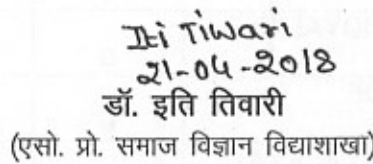 Iti Tiwari
21-04-2018
डॉ. इति तिवारी
(एसो. प्रो. समाज विज्ञान विद्याशाखा)